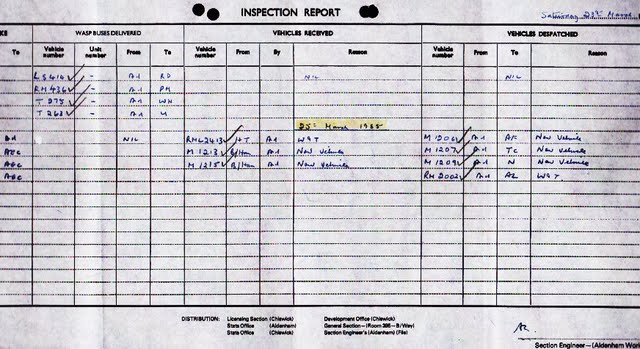 INSPECTION REPORT
Saturday 23rd March
KE WASP BUSES DELIVERED VEHICLES RECEIVED VEHICLES DESPATCHED
To Vehicle number Unit number From To Vehicle number From By Reason Vehicle number From To Reason
LS414 - Ad RD NIL NIL
RM436 - Ad PM
T 275 - Ad WN
T 262 - Ad U
25th March 1985
Ad NIL RML2413 HT Ad WGT M 1206 Ad AF New Vehicle
ABC M 1213 B/Ham Ad New Vehicle M 1207 Ad TC New Vehicle
ABC M 1215 B/Ham Ad New Vehicle M 1209 Ad N New Vehicle
ABC RM 2002 Ad AL WGT.
DISTRIBUTION: Licensing Section (Chiswick) Development Office (Chiswick)
Stats Office (Aldenham) General Section—(Room 395—B/Way)
Stats Office (Chiswick) Section Engineer's (Aldenham) (File)
Section Engineer—(Aldenham Wor